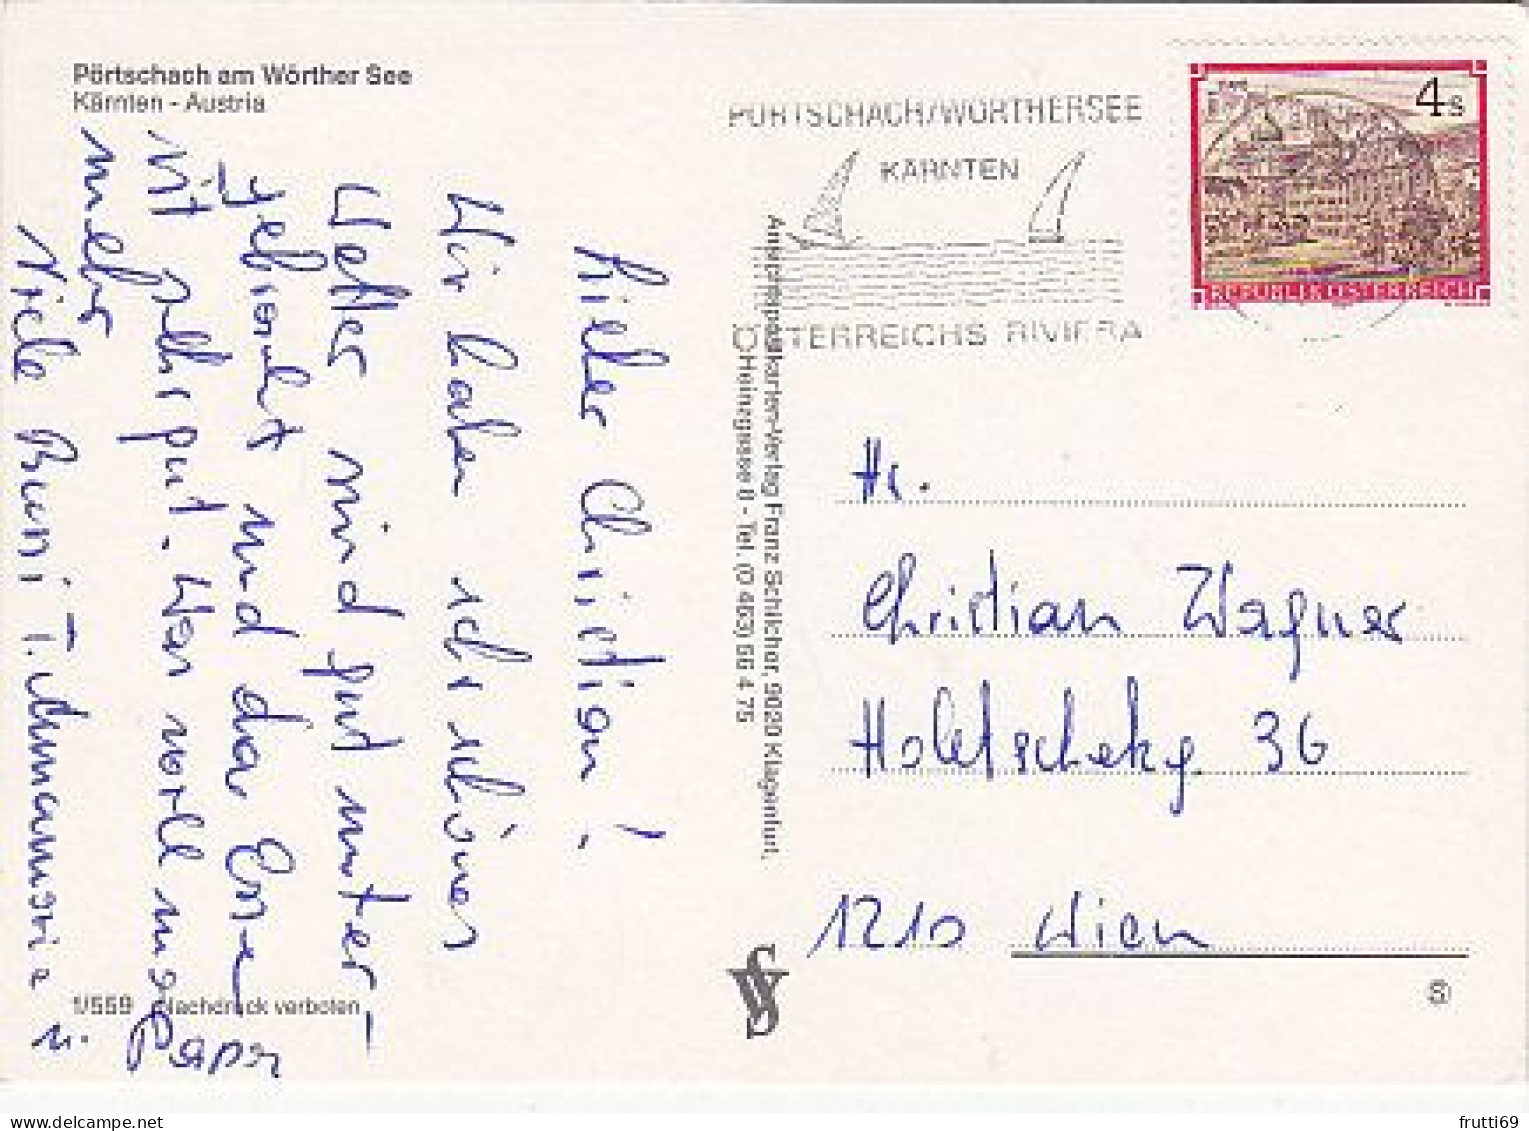 Pörtschach am Wörther See
Kärnten - Austria
PÖRTSCHACH/WÖRTHERSEE
KÄRNTEN
ÖSTERREICHS RIVIERA
4 s
REPUBLIK ÖSTERREICH
Lieber Christian!
Wir haben sehr schönes
Wetter sind gut unter-
gebracht und das Essen
ist sehr gut. Was will man
mehr
Viele Bussi T. Annamarie u.
Papa
Ansichtskarten-Verlag Franz Schilcher, 9020 Klagenfurt,
Tel. (0 463) 56 4 75
Hr.
Christian Wagner
Holetschekg. 36
1210 Wien
1/559 Nachdruck verboten
S
frutti69